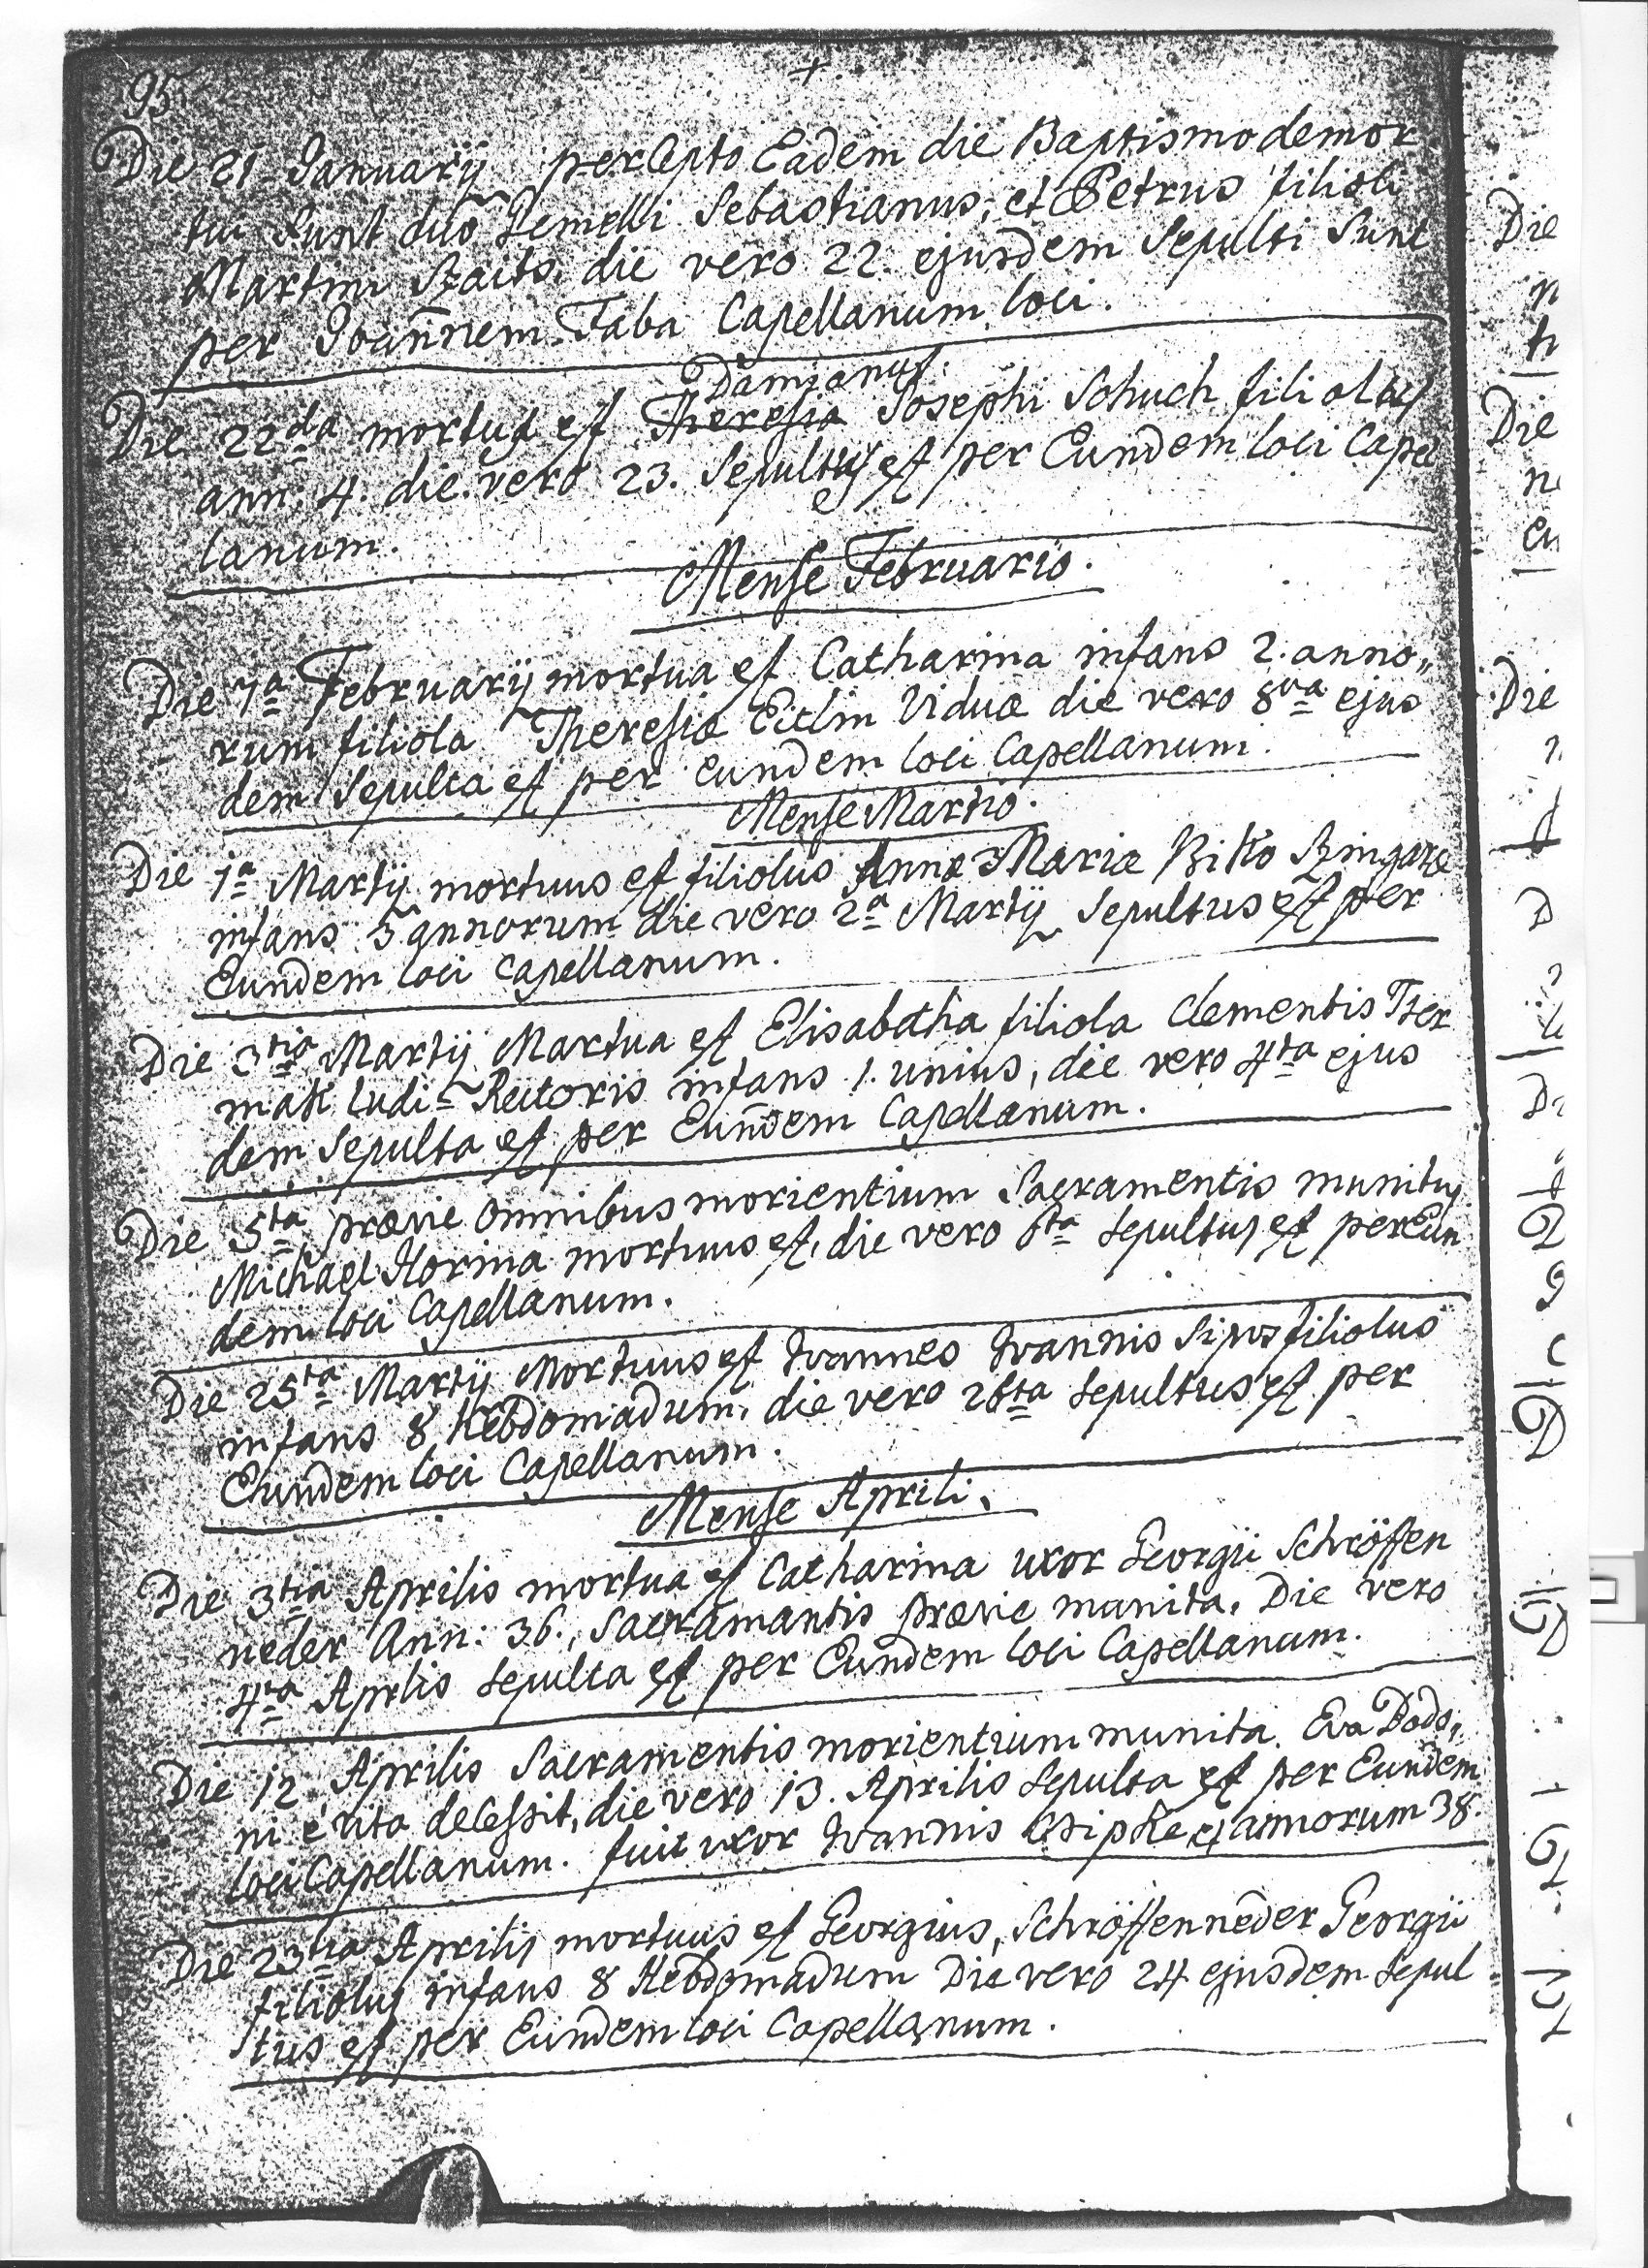 95
+
Die 21 Januarij percepto Eadem die Baptismo demor
tui Sunt duo Gemelli Sebastianus, et Petrus filioli
Martini Szaits, die vero 22. ejusdem Sepulti Sunt
per Joannem Faba Capellanum loci.
Damianus
Die 22da mortus est Theresia Josephi Schuch filiolus
ann: 4. die vero 23. Sepultus est per Eundem loci Capel
lanum.
Mense Februario.
Die 7a Februarij mortua est Catharina infans 2. anno„
rum filiola Theresiæ Eitlin Viduæ die vero 8va ejus
dem Sepulta est per eundem loci Capellanum.
Mense Martio.
Die 1a Martij mortuus est filiolus Annæ Mariæ Bitto Szingaræ
infans 5 annorum die vero 2a Martij Sepultus est per
Eundem loci Capellanum.
Die 3tia Martij Martua est Elisabetha filiola Clementis Tser
mak ludi Rectoris infans 1. unius, die vero 4ta ejus
dem Sepulta est per Eundem Capellanum.
Die 5ta prævie omnibus morientium Sacramentis munitus
Michael Horina mortuus est, die vero 6ta Sepultus est per Eun
dem loci Capellanum.
Die 25ta Martij Mortuus est Ioannes Ioannis Sipos filiolus
infans 8 Hebdomadum, die vero 26ta Sepultus est per
Eundem loci Capellanum.
Mense Aprili.
Die 3tia Aprilis mortua est Catharina uxor Georgii Schröffen
neder Ann: 36., Sacramantis prævie munita. Die vero
4ta Aprilis Sepulta est per Eundem loci Capellanum.
Die 12 Aprilis Sacramentis morientium munita. Eva Dods„
ni è vita decessit, die vero 13. Aprilis Sepulta est per Eundem
loci Capellanum. fuit uxor Ioannis Csipke et annorum 38.
Die 23tia Aprilis mortuus est Georgius, Schröffenneder Georgii
filiolus infans 8 Hebdomadum Die vero 24 ejusdem Sepul
tus est per Eundem loci Capellanum.
Die
Die
Die